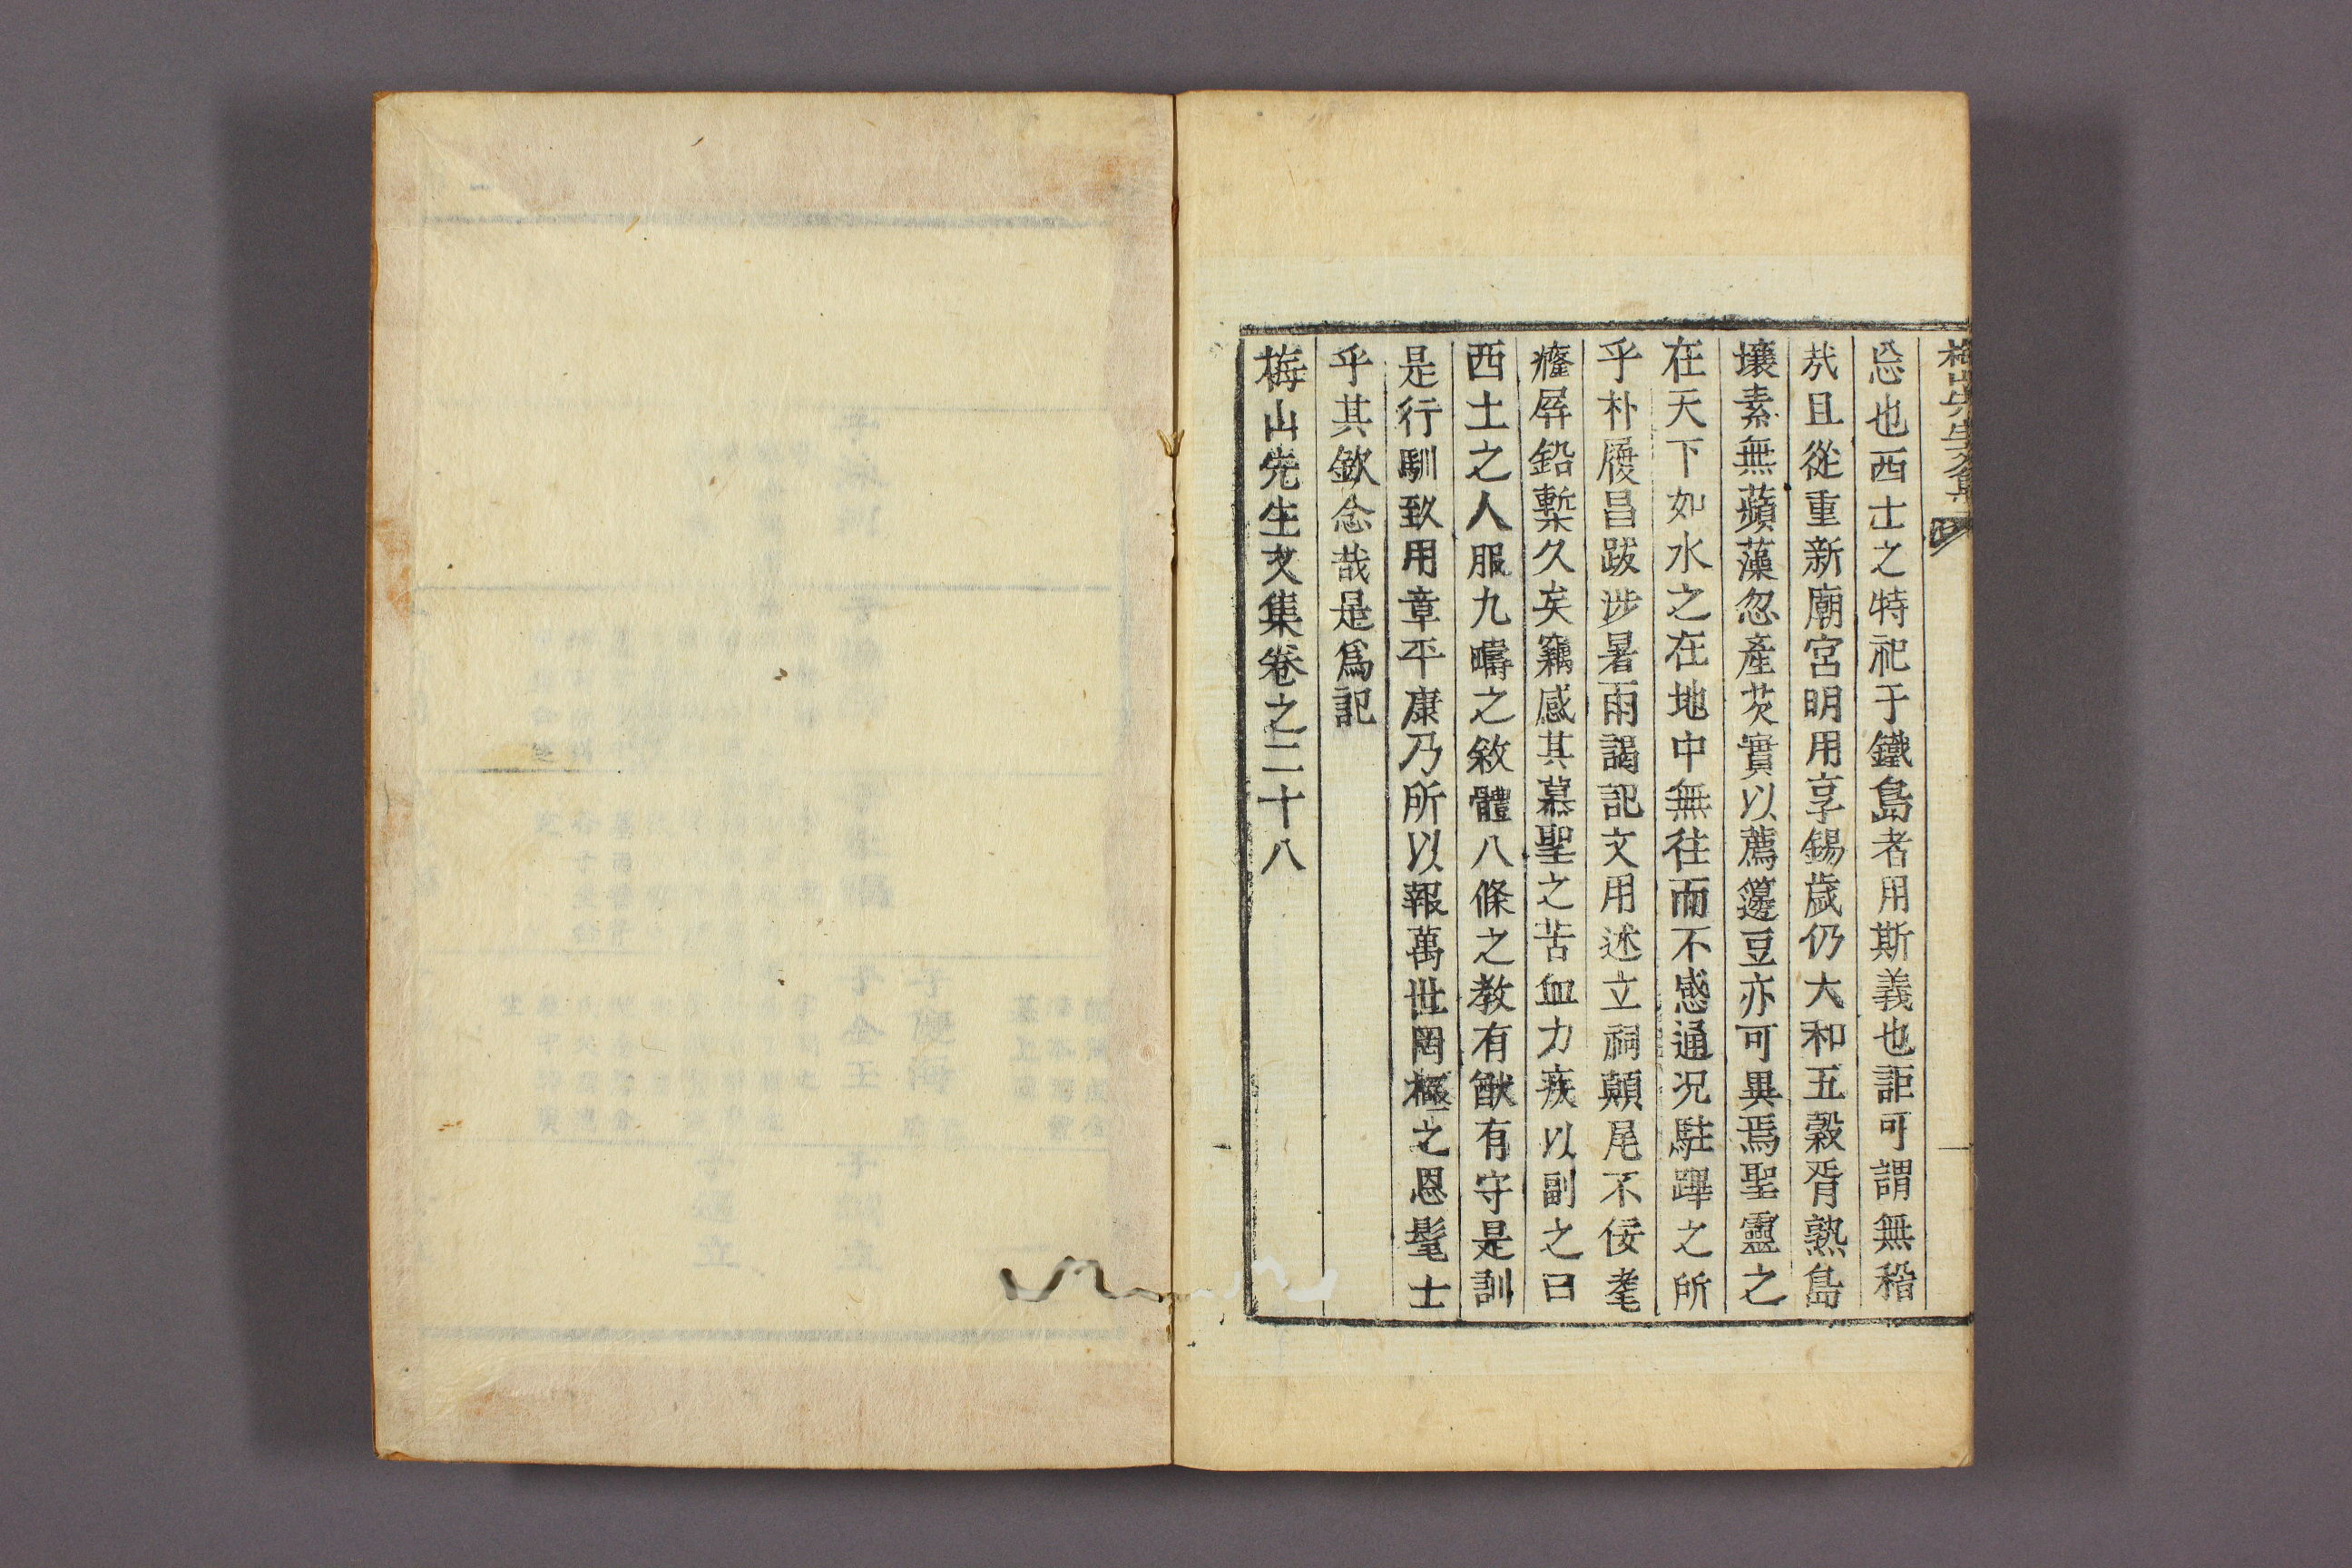 梅山先生文集
忘也西士之特祀于鐵島者用斯義也詎可謂無稽
㢤且從重新廟宮明用享錫歲仍大和五穀胥熟島
壤素無蘋藻忽產芡實以薦籩豆亦可異焉聖靈之
在天下如水之在地中無往而不感通况駐蹕之所
乎朴履昌跋涉暑雨謁記文用述立祠顚尾不佞耄
癃屛鉛槧久矣竊感其慕聖之苦血力疾以副之曰
西土之人服九疇之敘體八條之教有猷有守是訓
是行馴致用章平康乃所以報萬世罔極之恩髦士
乎其欽念哉是爲記
梅山先生文集卷之二十八